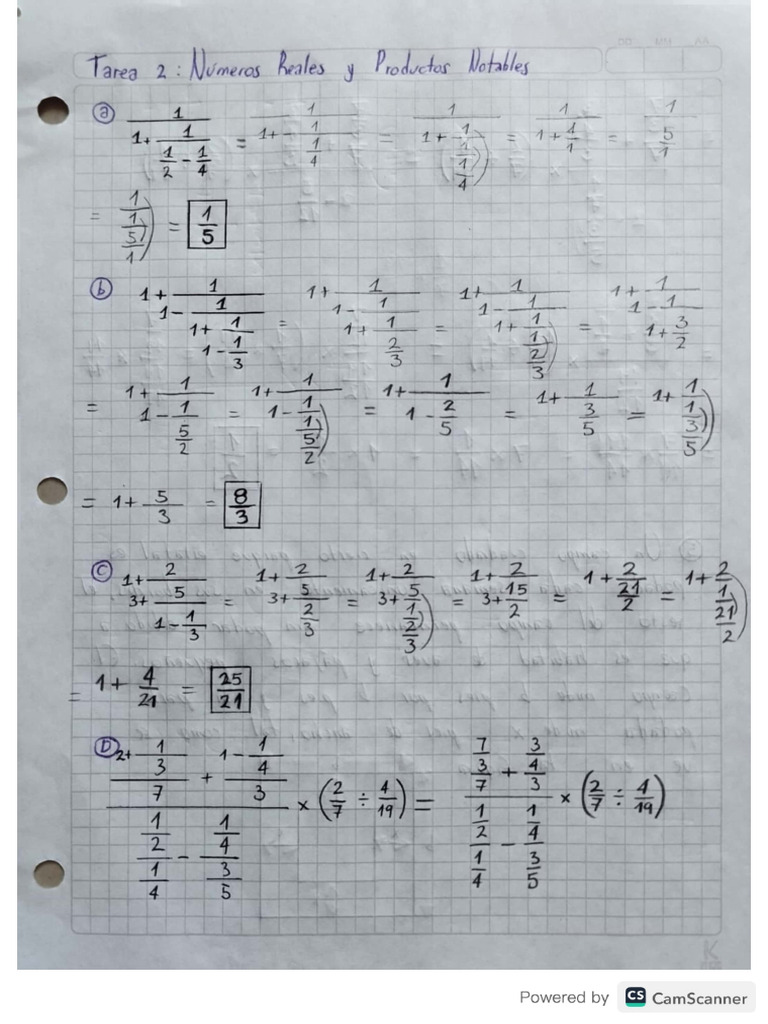 Tarea 2: Números Reales y Productos Notables
a) 1/(1+1/(1/2-1/4)) = 1/(1+-1/(1/4)) = 1/(1+1/(1/(1/4))) = 1/(1+4/1) = 1/(5/1)
= 1/(1/(5/1)) = 1/5
b) 1+1/(1-1/(1+1/(1-1/3))) = 1+1/(1-1/(1+1/(2/3))) = 1+1/(1-1/(1+1/(1/(2/3)))) = 1+1/(1-1/(1+3/2))
= 1+1/(1-1/(5/2)) = 1+1/(1-1/(1/(5/2))) = 1+1/(1-2/5) = 1+1/(3/5) = 1+1/(1/(3/5))
= 1+5/3 = 8/3
C) 1+2/(3+5/(1-1/3)) = 1+2/(3+5/(2/3)) = 1+2/(3+5/(1/(2/3))) = 1+2/(3+15/2) = 1+2/(21/2) = 1+2/(1/(21/2))
= 1+4/21 = 25/21
D) ((2+1/3)/7 + (1-1/4)/3)/((1/2)/(1/4) - (1/4)/(3/5)) × (2/7 ÷ 4/19) = ((7/3)/7 + (3/4)/3)/((1/2)/(1/4) - (1/4)/(3/5)) × (2/7 ÷ 4/19)
K
Powered by CS CamScanner